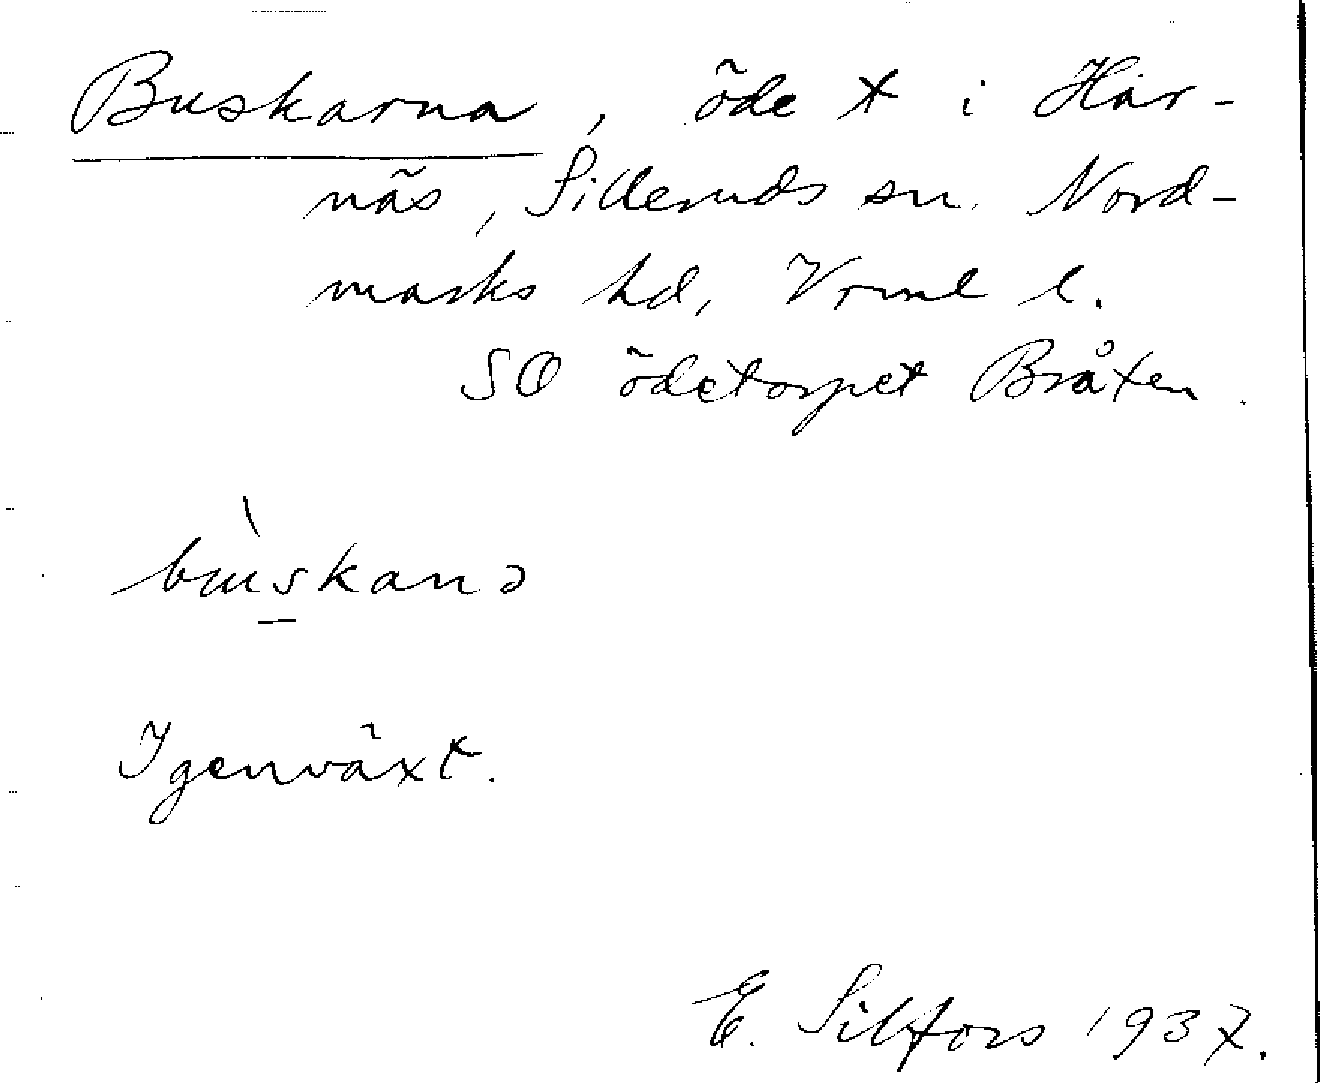 Buskarna, öde t i Här-
näs, Silleruds sn. Nord-
marks hd, Vrml l.
SO ödetorpet Bråten.
Igenväxt.
E. Silfors 1937.